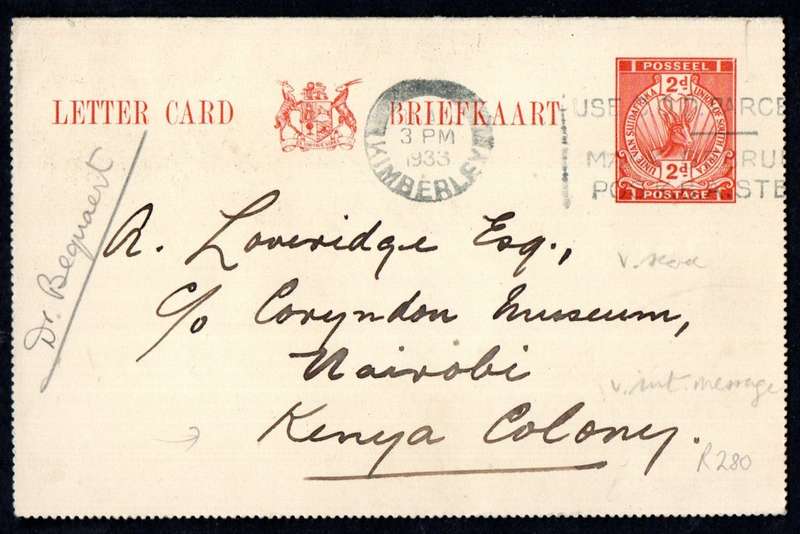 LETTER CARD BRIEFKAART
POSSEEL
2d
UNIE VAN SUIDAFRIKA
UNION OF SOUTH AFRICA
2d
POSTAGE
3 PM
1933
KIMBERLEY
USE
PARCE
MA
RU
PO
STE
Dr. Bequaert
A. Loveridge Esq.,
c/o Coryndon Museum,
Nairobi
Kenya Colony.
v. int. message
R280